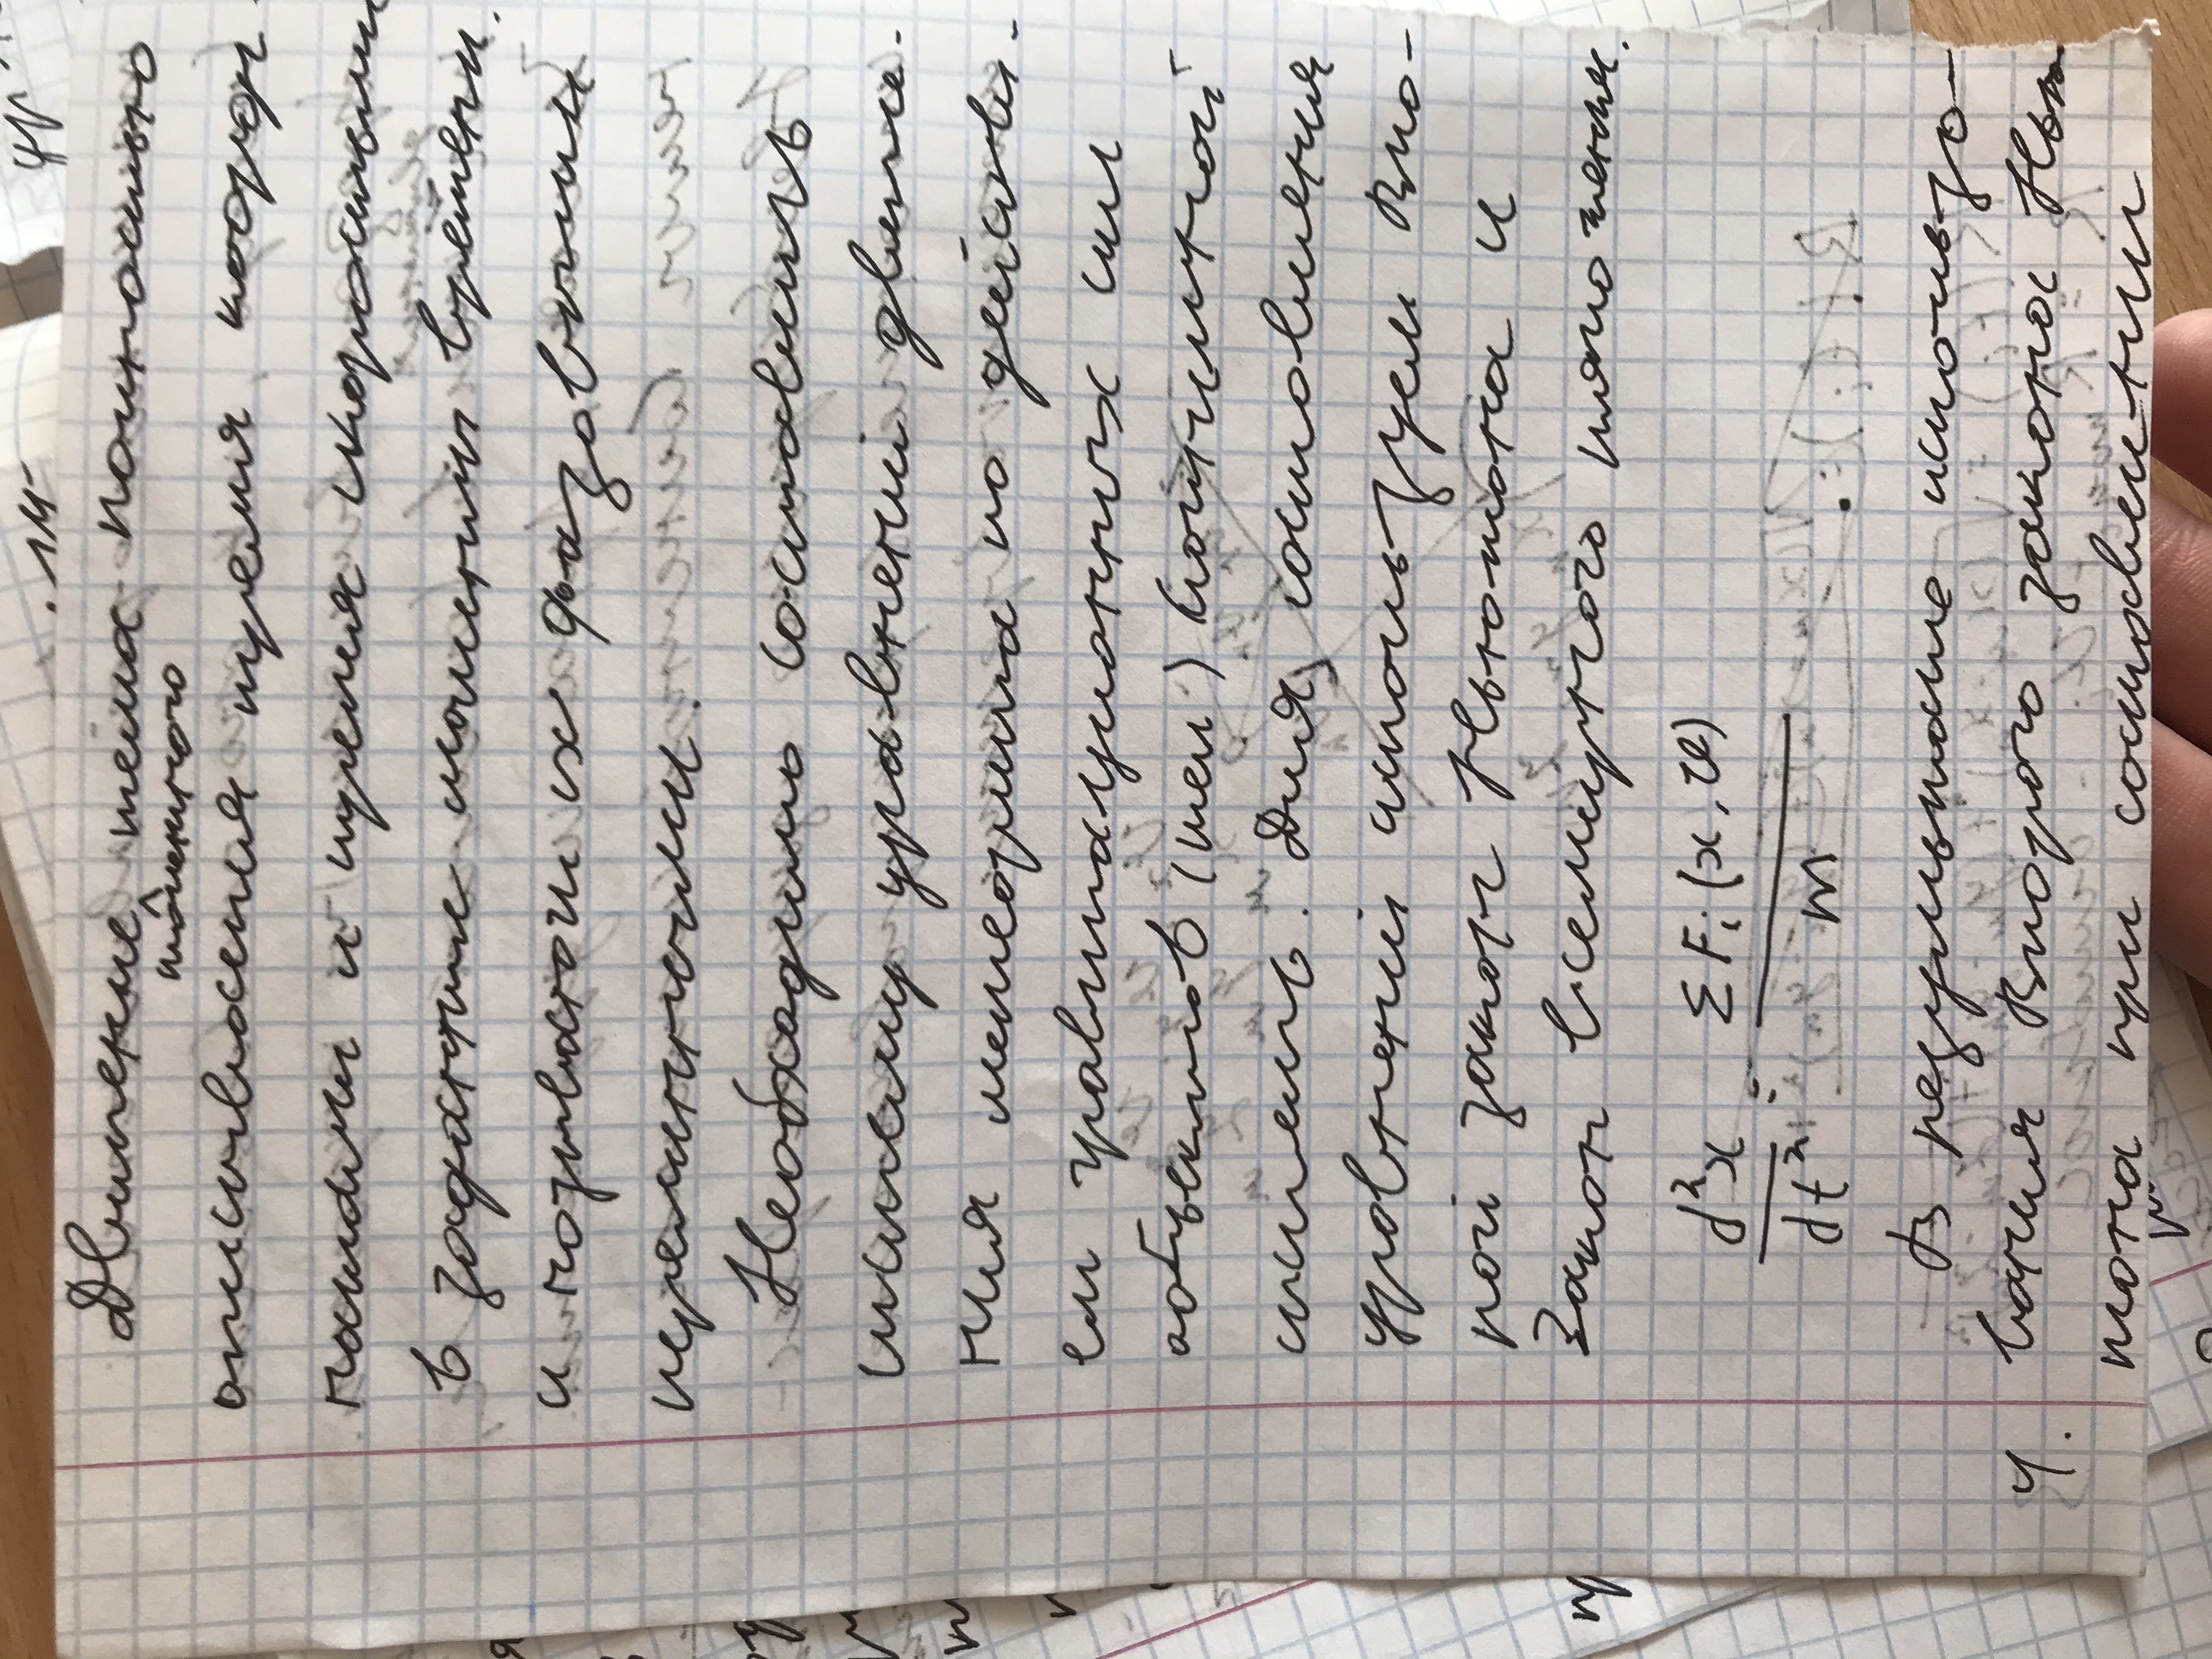 Движение тела полностью
точечного
описывается тремя коорди-
натами и тремя скоростями
в заданные моменты времени.
и называют их фазовыми
переменными.
Необходимо составить
систему уравнений движе-
ния метеорита по действи-
ем гравитационных сил
объектов (тел) Солнечной
системы. Для составления
уравнений используем Вто-
рой закон Ньютона и
Закон всемирного тяготения.
d²x / dt² = ΣFᵢ(x, v) / m
В результате использо-
4. вания Второго закона Нью-
тона при составлении